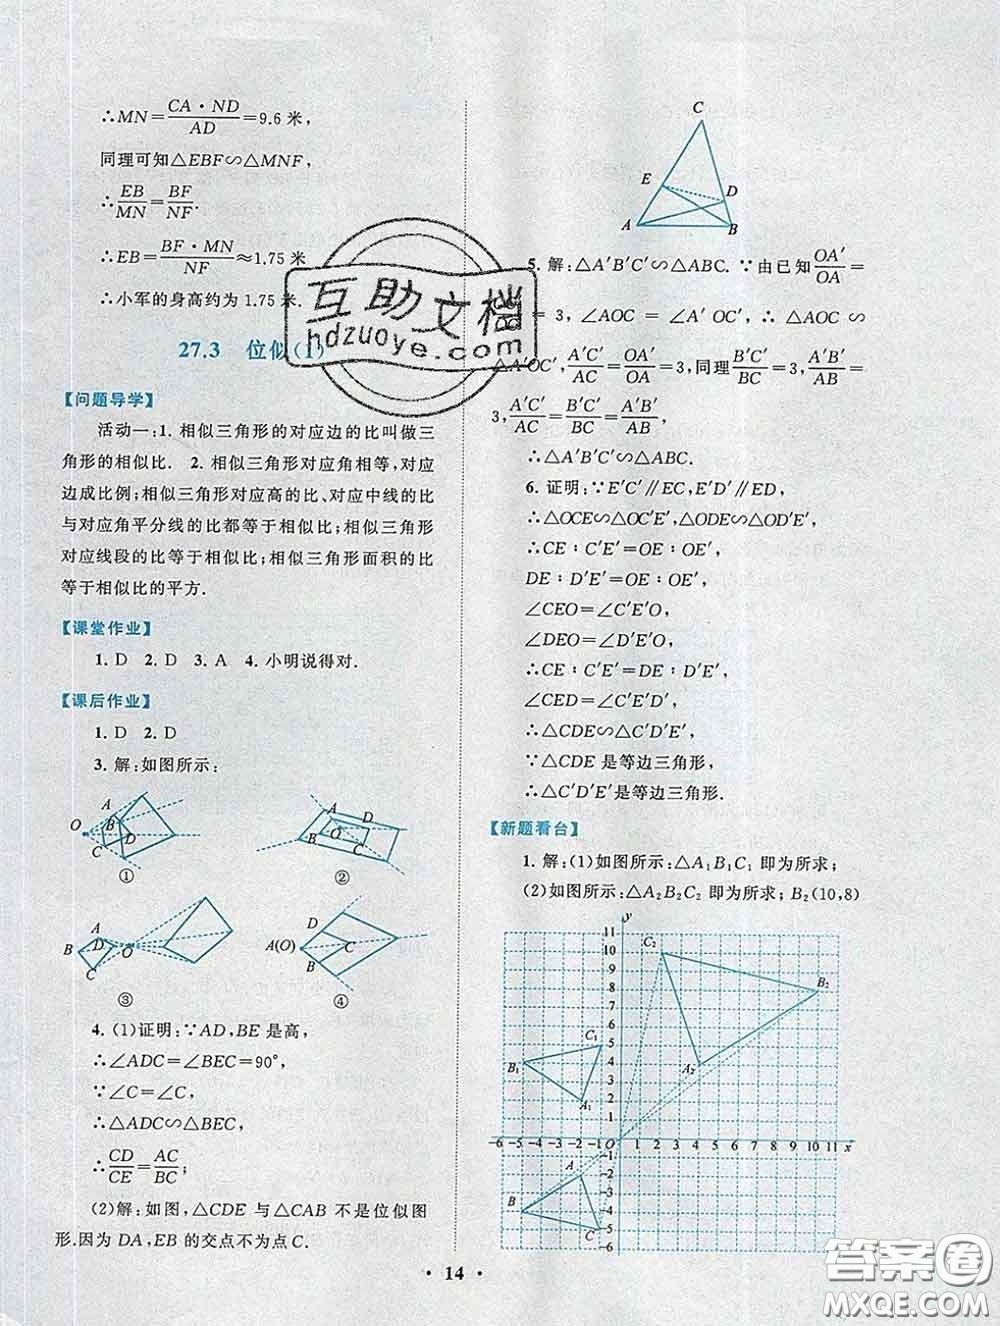 ∴MN=CA·ND/AD=9.6 米,
同理可知△EBF∽△MNF,
∴EB/MN=BF/NF.
∴EB=BF·MN/NF≈1.75 米
∴小军的身高约为 1.75 米.
27.3 位似(1)
【问题导学】
活动一:1. 相似三角形的对应边的比叫做三
角形的相似比. 2. 相似三角形对应角相等,对应
边成比例;相似三角形对应高的比、对应中线的比
与对应角平分线的比都等于相似比;相似三角形
对应线段的比等于相似比;相似三角形面积的比
等于相似比的平方.
【课堂作业】
1. D 2. D 3. A 4. 小明说得对.
【课后作业】
1. D 2. D
3. 解:如图所示:
O A B C D
①
A B C D O
②
A B C D O
③
A(O) B C D
④
4. (1)证明:∵AD,BE 是高,
∴∠ADC=∠BEC=90°,
∵∠C=∠C,
∴△ADC∽△BEC,
∴CD/CE=AC/BC;
(2)解:如图,△CDE 与△CAB 不是位似图
形.因为 DA,EB 的交点不为点 C.
C
E
D
A
B
5. 解:△A′B′C′∽△ABC. ∵由已知OA′/OA=
= 3, ∠AOC = ∠A′ OC′, ∴ △AOC ∽
△A′OC′, A′C′/AC=OA′/OA=3,同理B′C′/BC=3, A′B′/AB=
3, A′C′/AC=B′C′/BC=A′B′/AB,
∴△A′B′C′∽△ABC.
6. 证明:∵E′C′∥EC,E′D′∥ED,
∴△OCE∽△OC′E′,△ODE∽△OD′E′,
∴CE∶C′E′=OE∶OE′,
DE∶D′E′=OE∶OE′,
∠CEO=∠C′E′O,
∠DEO=∠D′E′O,
∴CE∶C′E′=DE∶D′E′,
∠CED=∠C′E′D′,
∴△CDE∽△C′D′E′,
∵△CDE 是等边三角形,
∴△C′D′E′是等边三角形.
【新题看台】
1. 解:(1)如图所示:△A₁B₁C₁ 即为所求;
(2)如图所示:△A₂B₂C₂ 即为所求;B₂(10,8)
y
11
10
9
8
7
6
5
4
3
2
1
C₂
B₂
A₂
C₁
B₁
A₁
-6 -5 -4 -3 -2 -1 O 1 2 3 4 5 6 7 8 9 10 11 x
-1
-2
-3
-4
-5
-6
A
B
C
互助文档
hdzuoye.com
· 14 ·
答案圈
MXQE.COM